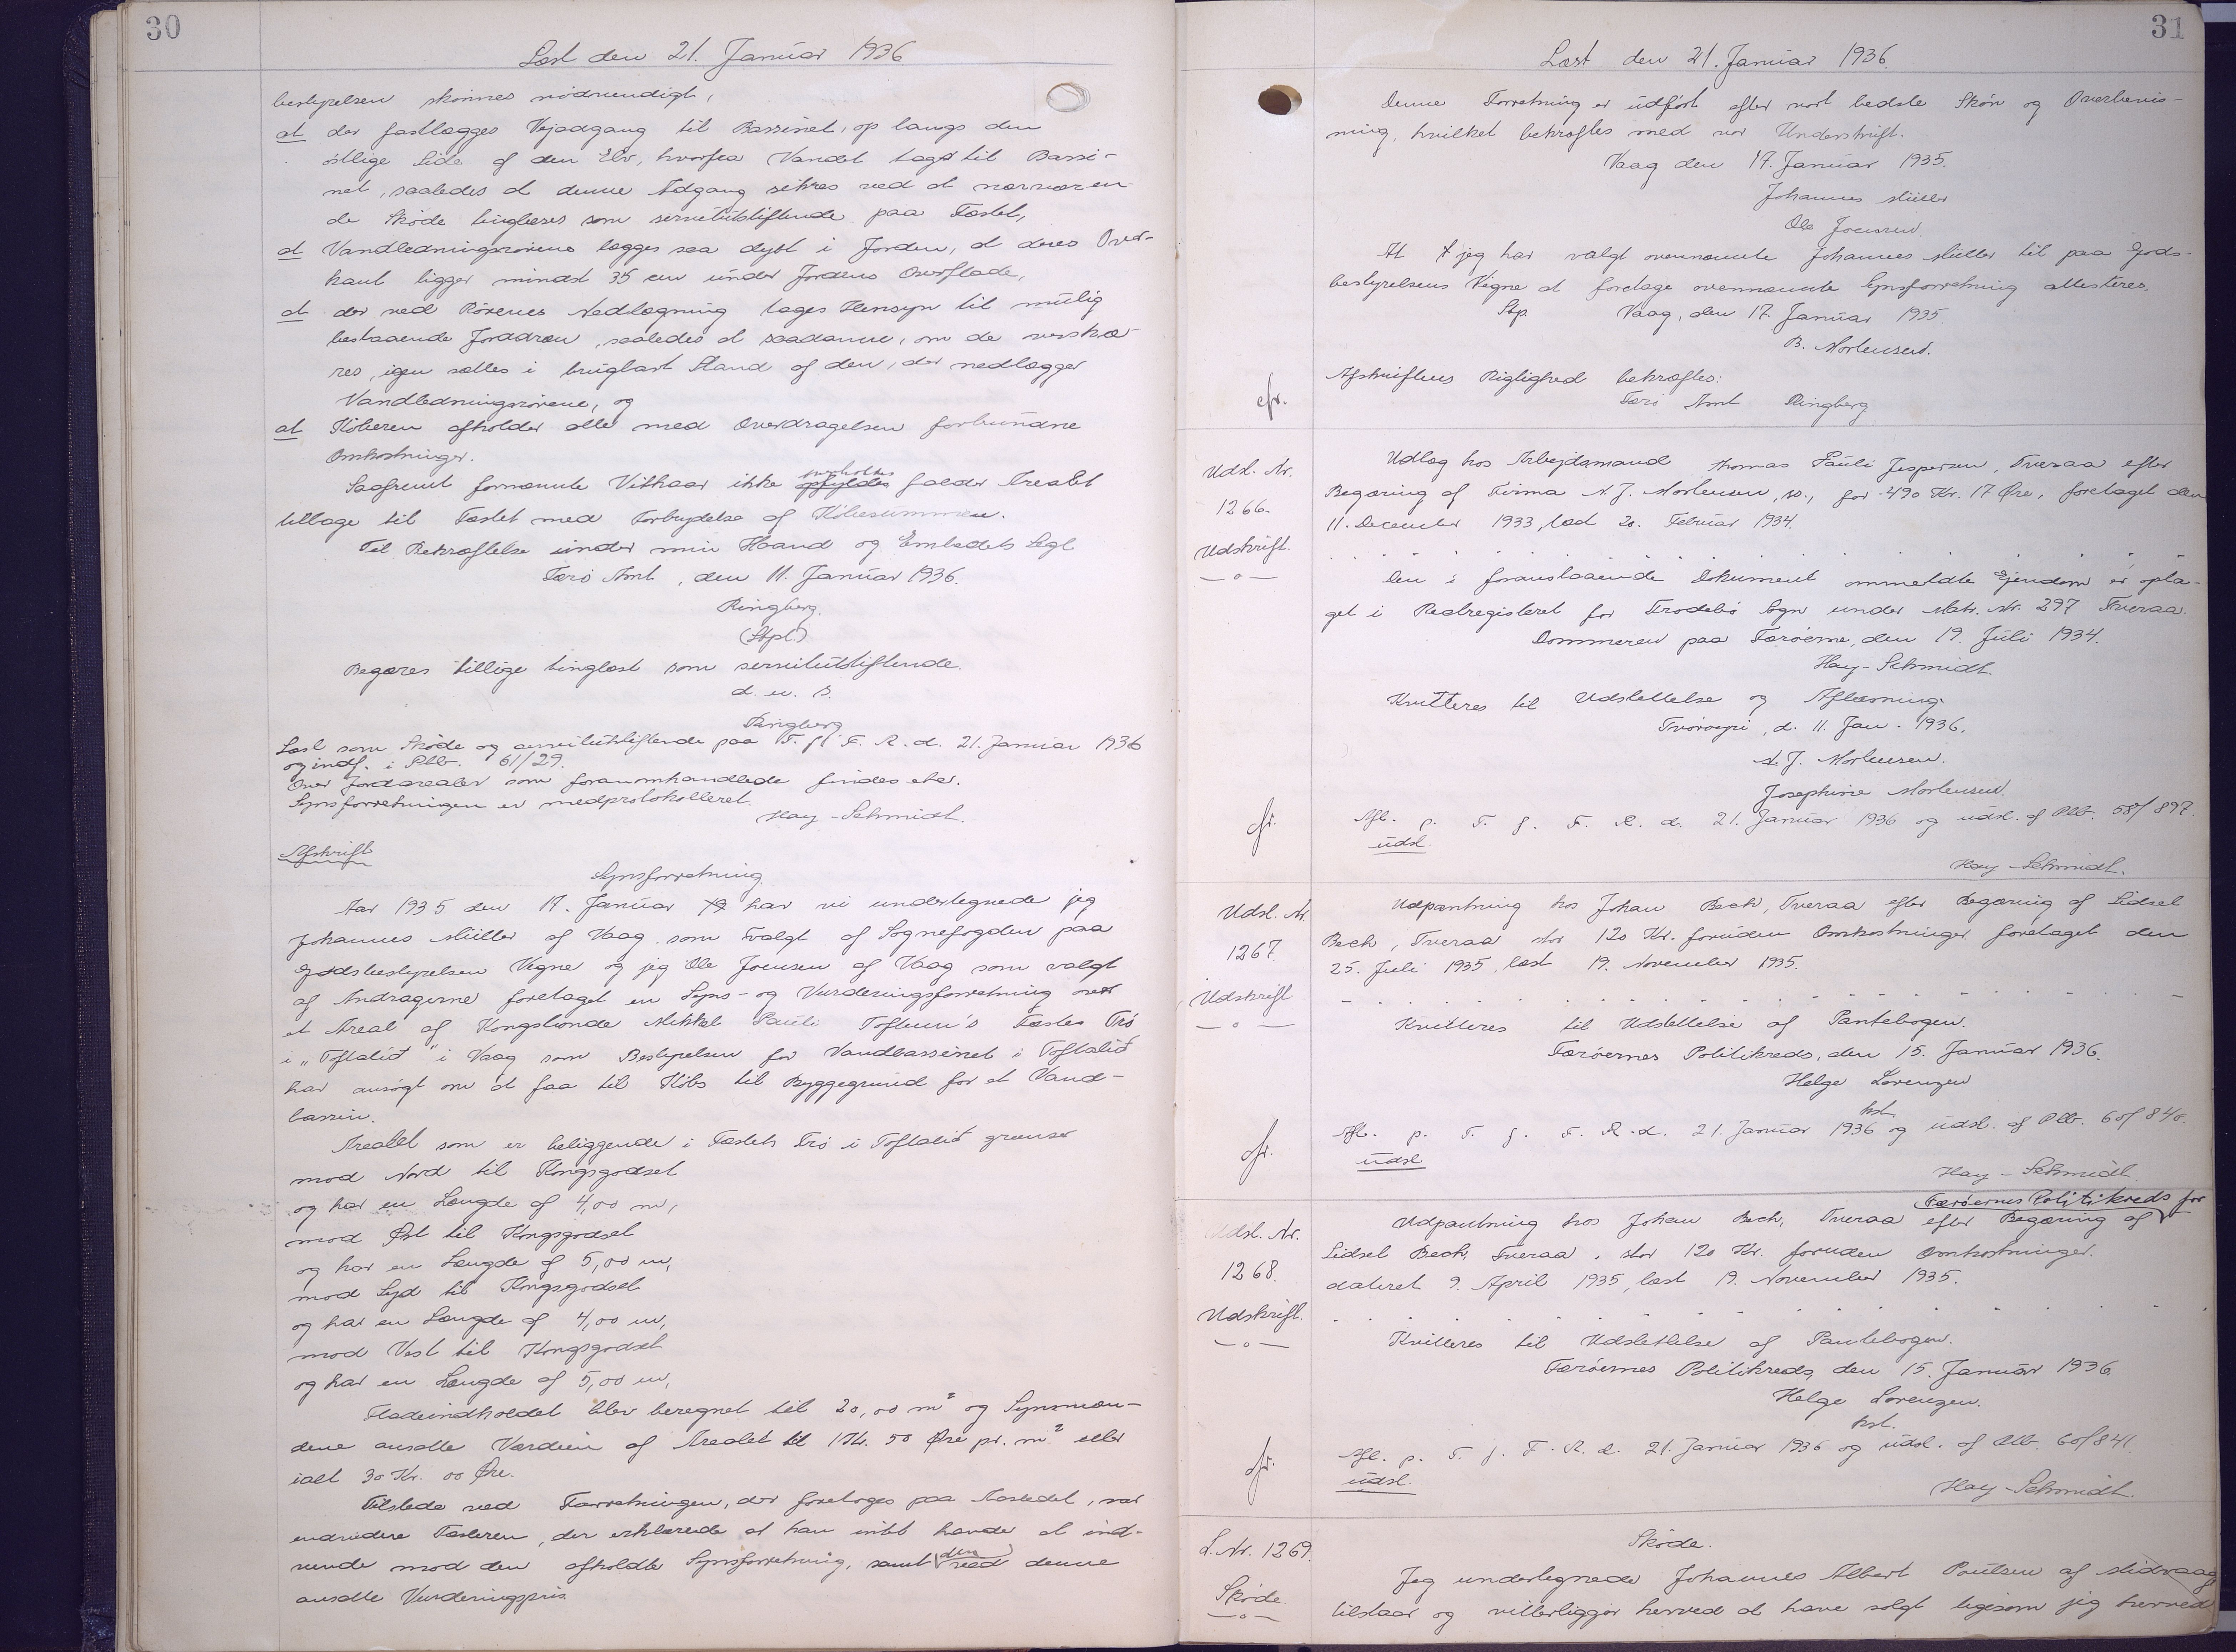 30
Læst den 21. Januar 1936
bestyrelsen skønnes nødvendigt,
at der fastlægges Vejadgang til Bassinet, op langs den
østlige Side af den Elv, hvorfra Vandet tages til Bassi-
net, saaledes at denne Adgang sikres ved at nærværen
de Skøde tinglæses som servitutstiftende paa Fæstet,
at Vandledningsrørene lægges saa dybt i Jorden, at deres Over-
kant ligger mindst 35 cm under Jordens Overflade,
at der ved Rørenes Nedlægning tages Hensyn til mulig
bestaaende Joraaren, saaledes at saadanne, om de overskæ-
res, igen sættes i brugbart Stand af den, der nedlægger
Vandledningsrørene, og
at Køberen afholder alle med Overdragelsen forbundne
Omkostninger.
overholdes
Saafremt fornævnte Vilkaar ikke opfyldes falder Arealet
tilbage til Fæstet med Fortrydelse af Købesummen.
Til Bekræftelse under min Haand og Embedets Segl
Færø Amt, den 11. Januar 1936.
Ringberg.
(Stpl.)
Begæres tillige tinglæst som servitutstiftende.
d. u. S.
Ringberg
Læst som Skøde og servitutstiftende paa T. f. F. R. d. 21. Januar 1936
og indf. i Ptb. 61/29.
Over Jordarealer som foranomhandlede findes etc.
Synsforretningen er medprotokolleret.
Hay-Schmidt.
Afskrift
Synsforretning.
Aar 1935 den 17. Januar 19 har vi undertegnede jeg
Johannes Müller af Vaag som valgt af Sognefogden paa
Godsbestyrelsen Vegne og jeg Ole Joensen af Vaag som valgt
af Andragerne foretaget en Syns- og Vurderingsforretning over
et Areal af Kongsbonde Mikkel Pauli Toftum's Fæstes Trø
i "Toftalið" i Vaag som Bestyrelsen for Vandbassinet i Toftalið
har ansøgt om at faa til Købs til Byggegrund for et Vand-
bassin.
Arealet som er beliggende i Fæstets Trø i Toftalið grænser
mod Nord til Kongsgodset
og har en Længde af 4,00 m,
mod Øst til Kongsgodset
og har en Længde af 5,00 m,
mod Syd til Kongsgodset
og har en Længde af 4,00 m,
mod Vest til Kongsgodset
og har en Længde af 5,00 m,
Fladeindholdet blev beregnet til 20,00 m² og Synsmæn-
dene ansatte Værdien af Arealet til 1 Kr. 50 Øre pr. m² eller
ialt 30 Kr. 00 Øre.
Tilstede ved Forretningen, der foretoges paa Aastedet, var
endvidere Fæsteren, der erklærede at han intet havde at ind-
den
vende mod den afholdte Synsforretning, samt ved denne
ansatte Vurderingspris.
31
Læst den 21. Januar 1936.
Denne Forretning er udført efter vort bedste Skøn og Overbevis-
ning, hvilket bekræftes med vor Underskrift.
Vaag den 17. Januar 1935.
Johannes Müller
Ole Joensen.
At jeg har valgt ovennævnte Johannes Müller til paa Gods-
bestyrelsens Vegne at foretage ovennævnte Synsforretning attesteres.
Stp. Vaag, den 17. Januar 1935.
B. Mortensen.
Afskriftens Rigtighed bekræftes:
cfr. Færø Amt Ringberg
Udsl. Nr. 1266. Udskrift.
Udlæg hos Arbejdsmand Thomas Pauli Jespersen, Tveraa efter
Begæring af Firma N. J. Mortensen, ss., for 490 Kr. 17 Øre, foretaget den
11. December 1933, læst 20. Februar 1934.
Den i foranstaaende Dokument ommeldte Ejendom er opta-
get i Realregisteret for Frodebø Sogn under Matr. Nr. 297 Tveraa.
Dommeren paa Færøerne, den 19. Juli 1934.
Hay-Schmidt.
Kvitteres til Udslettelse og Aflæsning.
Tvøroyri, d. 11. Jan. 1936.
N. J. Mortensen.
Josephine Mortensen.
cfr. Afl. p. T. f. F. R. d. 21. Januar 1936 og udsl. af Ptb. 58/897.
udsl.
Hay-Schmidt.
Udsl. Nr. 1267. Udskrift
Udpantning hos Johan Bech, Tveraa efter Begæring af Sidsel
Bech, Tveraa stor 120 Kr. foruden Omkostninger foretaget den
25. Juli 1935, læst 19. November 1935.
Kvitteres til Udslettelse af Pantebogen.
Færøernes Politikreds, den 15. Januar 1936.
Helge Lorenzen
kst.
cfr. Afl. p. T. f. F. R. d. 21. Januar 1936 og udsl. af Ptb. 60/840.
udsl.
Hay-Schmidt.
Færøernes Politikreds for
Udsl. Nr. 1268. Udskrift.
Udpantning hos Johan Bech, Tveraa efter Begæring af
Sidsel Bech, Tveraa, stor 120 Kr. foruden Omkostninger.
dateret 9. April 1935, læst 19. November 1935.
Kvitteres til Udslettelse af Pantebogen.
Færøernes Politikreds, den 15. Januar 1936.
Helge Lorenzen.
kst.
cfr. Afl. p. T. f. F. R. d. 21. Januar 1936 og udsl. af Ptb. 60/841.
udsl.
Hay-Schmidt.
L. Nr. 1269. Skøde
Skøde.
Jeg undertegnede Johannes Albert Poulsen af Midvaag
tilstaar og vitterliggør herved at have solgt ligesom jeg herved